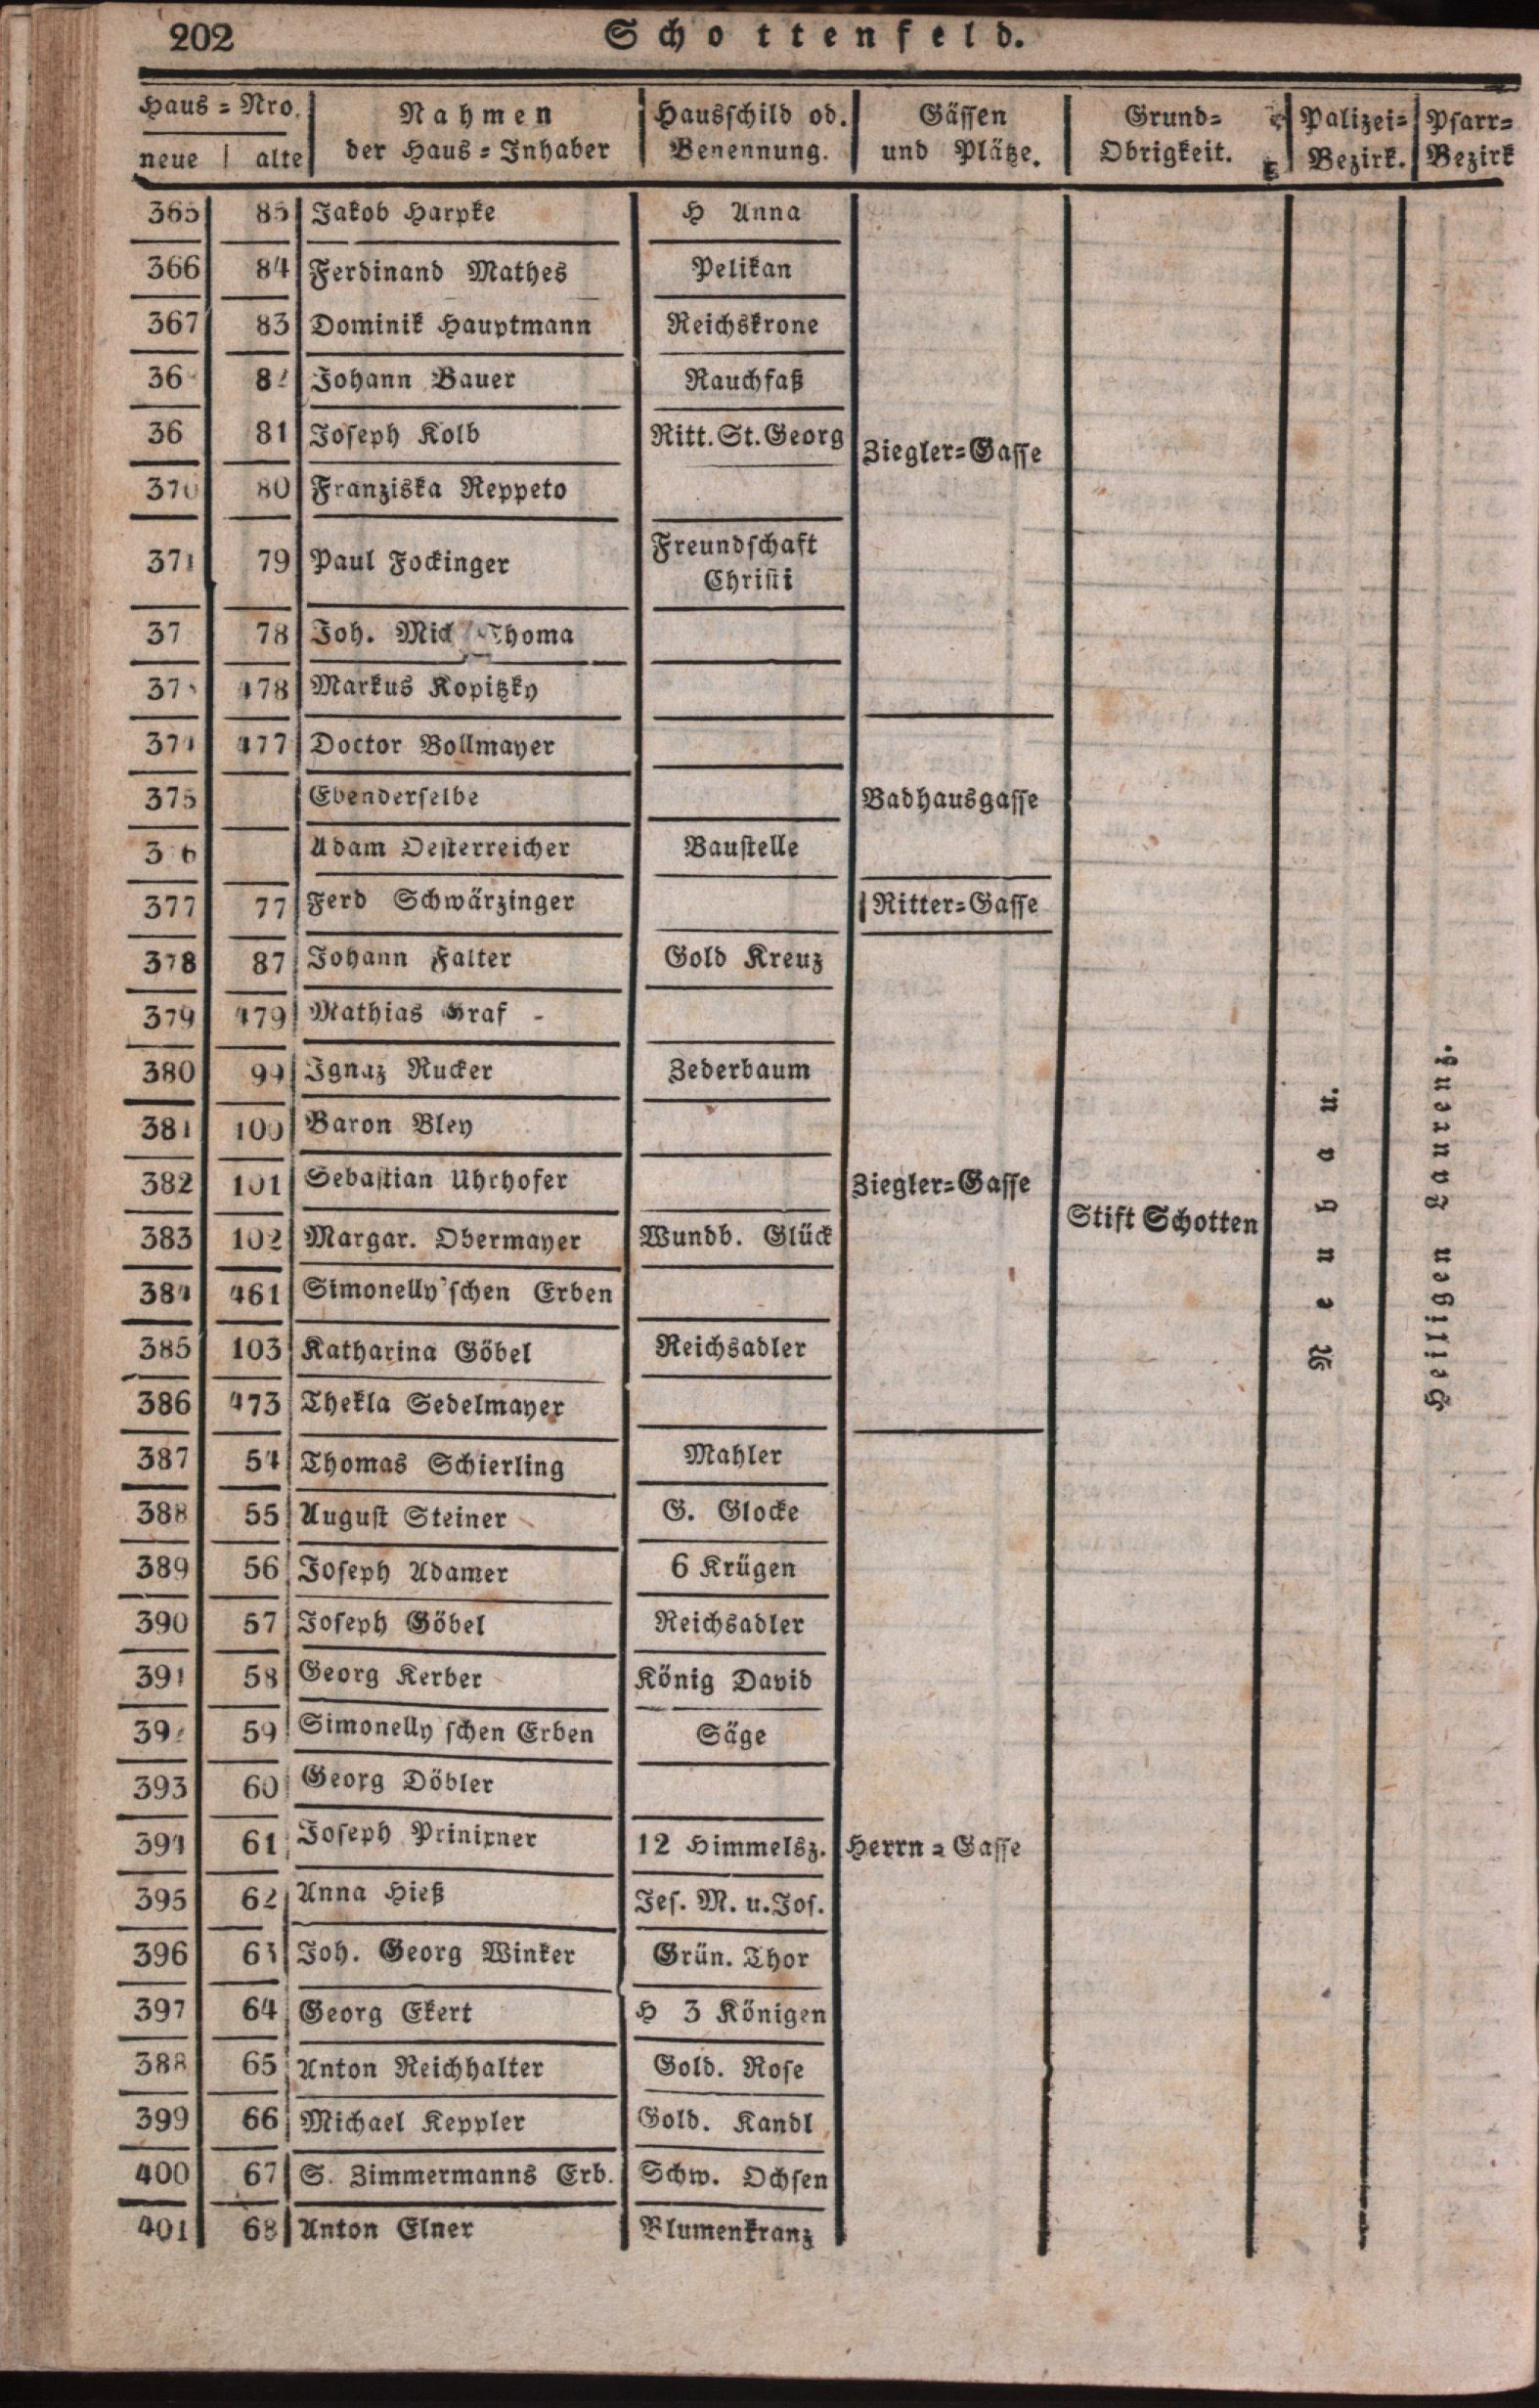 202 Schottenfeld.
Haus-Nro. | Nahmen | Hausschild od. | Gässen | Grund- | Polizei- | Pfarr-
neue | alte | der Haus-Inhaber | Benennung. | und Plätze. | Obrigkeit. | Bezirk. | Bezirk
365 85 Jakob Harpke H Anna
366 84 Ferdinand Mathes Pelikan
367 83 Dominik Hauptmann Reichskrone
36 8 Johann Bauer Rauchfaß
36 81 Joseph Kolb Ritt. St. Georg
Ziegler-Gasse
370 80 Franziska Reppeto
371 79 Paul Fockinger Freundschaft
Christi
37 78 Joh. Thoma
37 478 Markus Kopitzky
374 477 Doctor Vollmayer
375 Ebenderselbe Badhausgasse
3 6 Adam Oesterreicher Baustelle
377 77 Ferd Schwärzinger Ritter-Gasse
378 87 Johann Falter Gold Kreuz
379 479 Mathias Graf -
380 99 Ignaz Rucker Zederbaum
381 100 Baron Bley
382 101 Sebastian Uhrhofer Ziegler-Gasse
Stift Schotten
Neubau.
Heiligen Laurenz.
383 102 Margar. Obermayer Wundb. Glück
384 461 Simonelly'schen Erben
385 103 Katharina Göbel Reichsadler
386 473 Thekla Sedelmayer
387 54 Thomas Schierling Mahler
388 55 August Steiner G. Glocke
389 56 Joseph Adamer 6 Krügen
390 57 Joseph Göbel Reichsadler
391 58 Georg Kerber König David
39 59 Simonelly'schen Erben Säge
393 60 Georg Döbler
394 61 Joseph Prinixner 12 Himmelsz. Herrn-Gasse
395 62 Anna Hieß Jes. M. u. Jos.
396 63 Joh. Georg Winker Grün. Thor
397 64 Georg Ekert H 3 Königen
388 65 Anton Reichhalter Gold. Rose
399 66 Michael Keppler Gold. Kandl
400 67 S. Zimmermanns Erb. Schw. Ochsen
401 68 Anton Elner Blumenkranz